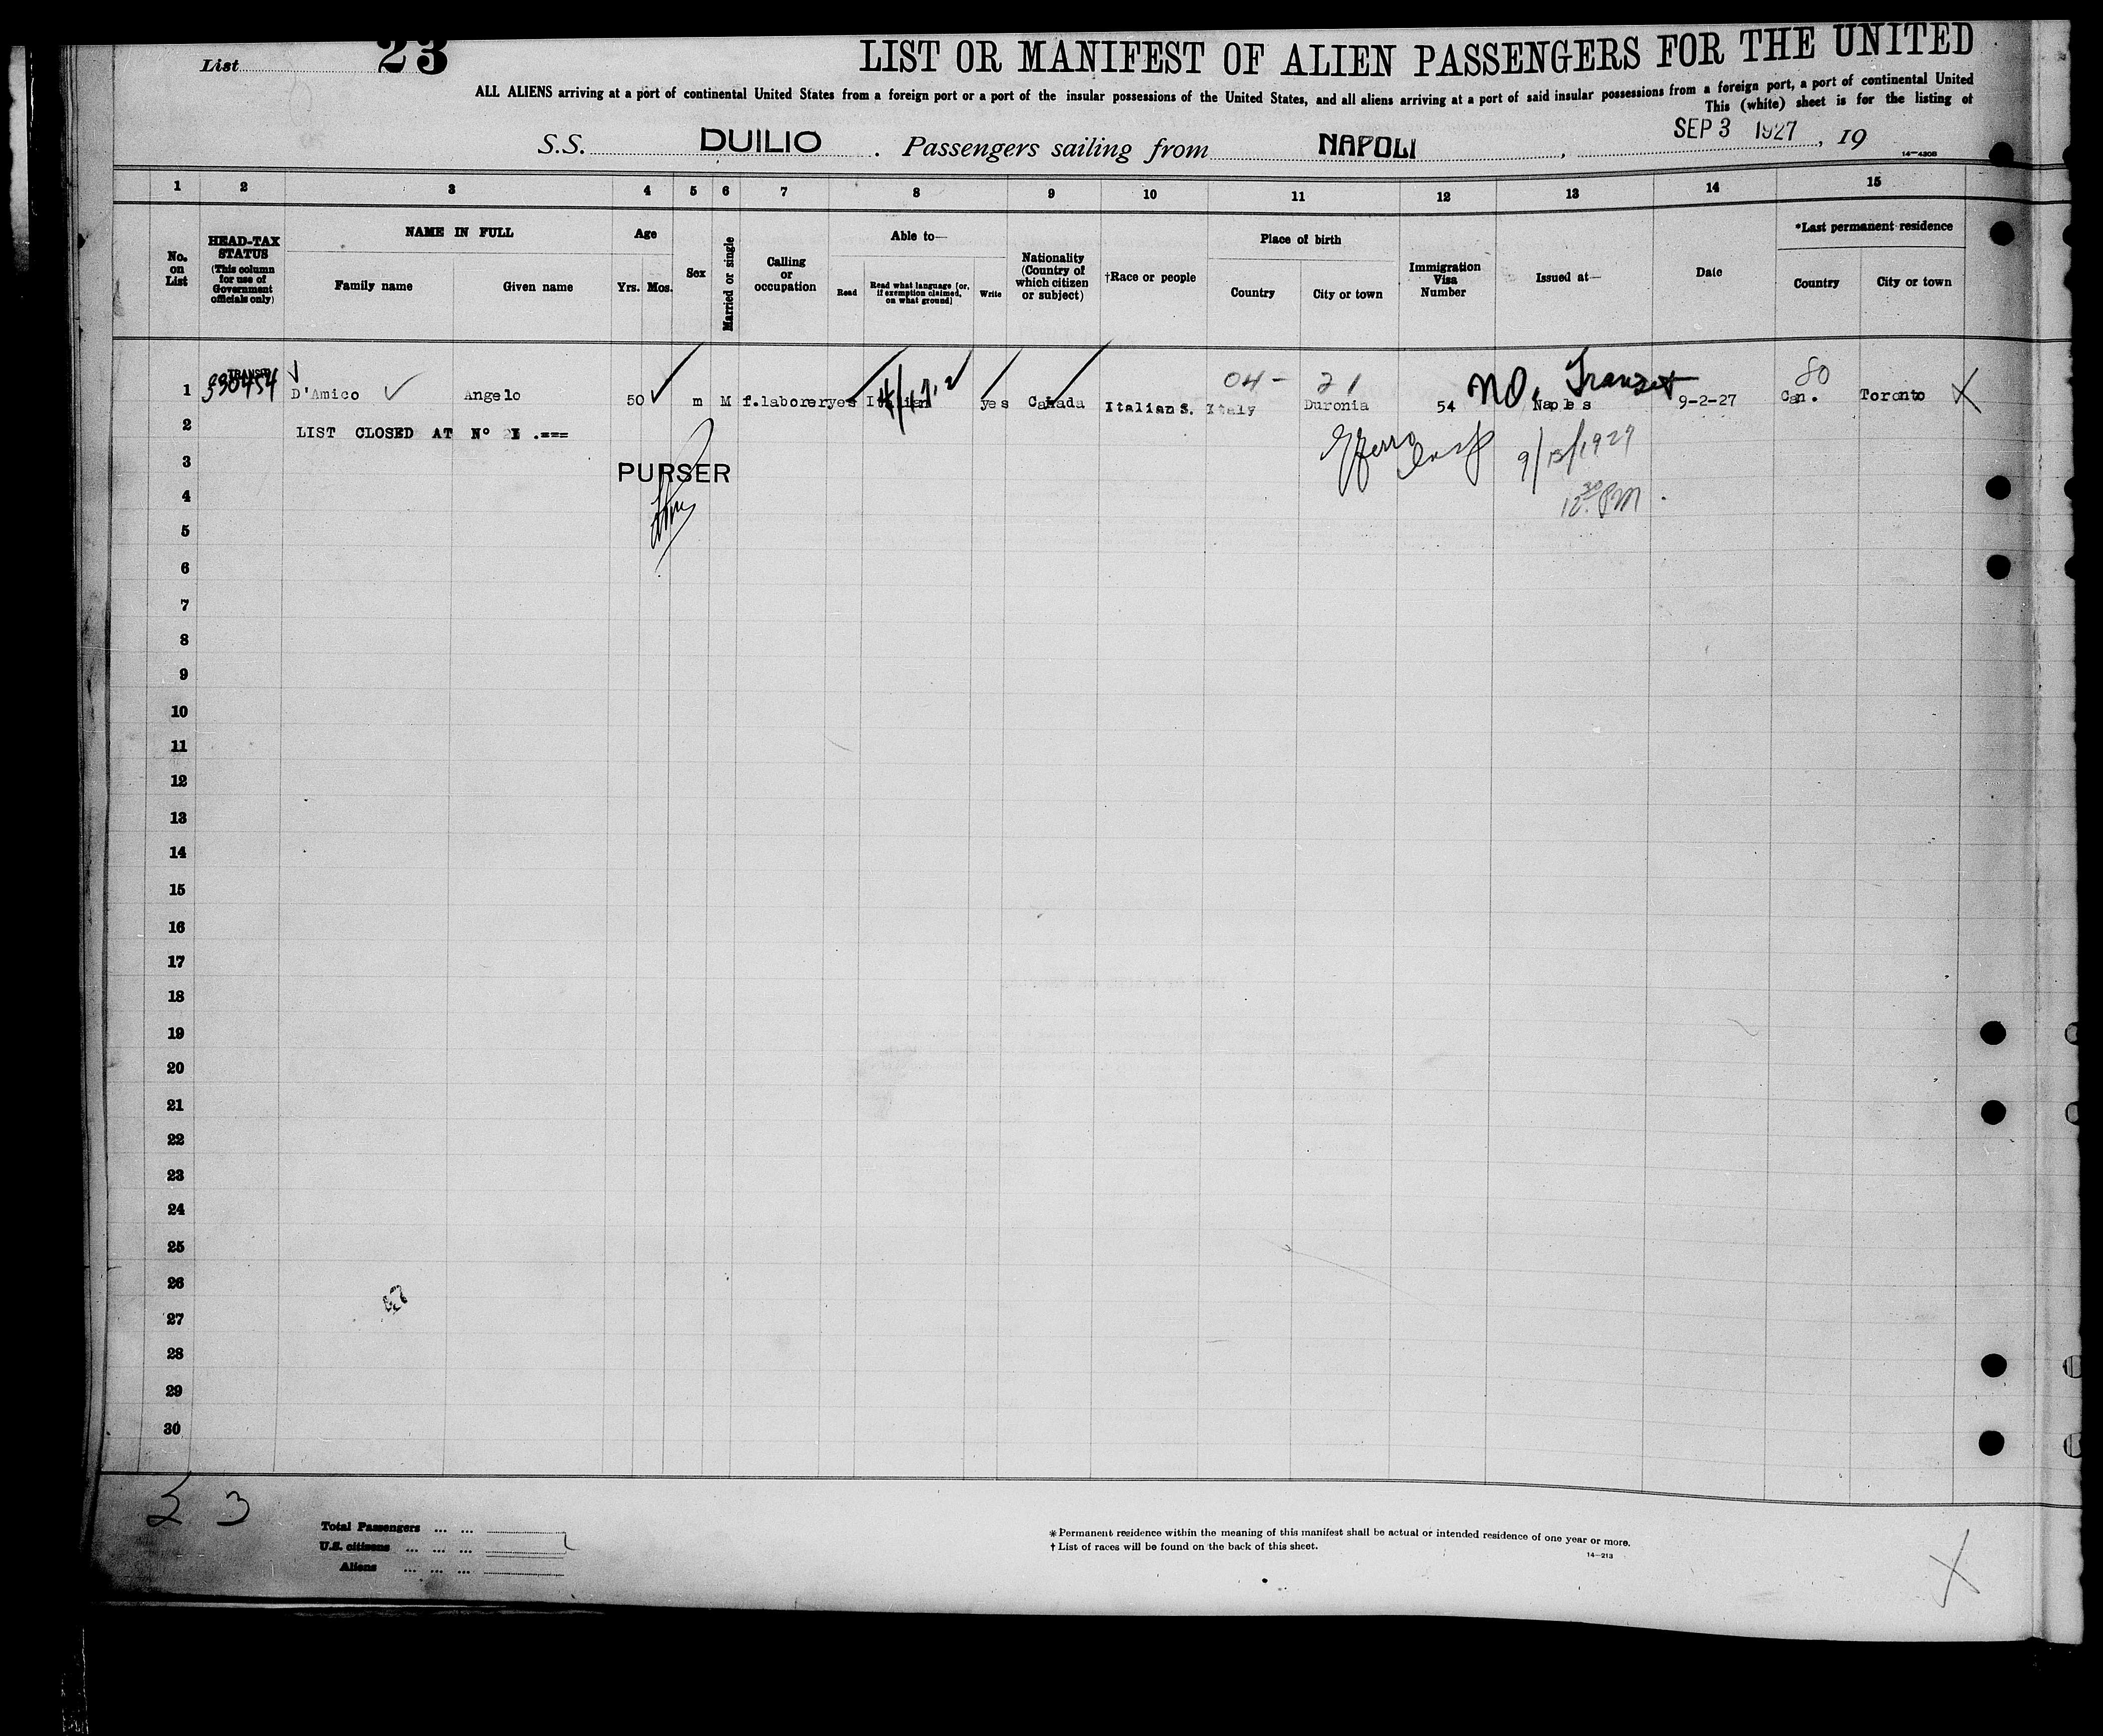 List 23
LIST OR MANIFEST OF ALIEN PASSENGERS FOR THE UNITED
ALL ALIENS arriving at a port of continental United States from a foreign port or a port of the insular possessions of the United States, and all aliens arriving at a port of said insular possessions from a foreign port, a port of continental United
This (white) sheet is for the listing of
S.S. DUILIO . Passengers sailing from NAPOLI , SEP 3 1927 , 19
14—430B
1 2 3 4 5 6 7 8 9 10 11 12 13 14 15
No. on List
HEAD-TAX STATUS (This column for use of Government officials only)
NAME IN FULL
Family name Given name
Age
Yrs. Mos.
Sex
Married or single
Calling or occupation
Able to—
Read
Read what language [or, if exemption claimed, on what ground]
Write
Nationality (Country of which citizen or subject)
†Race or people
Place of birth
Country City or town
Immigration Visa Number
Issued at—
Date
*Last permanent residence
Country City or town
TRANSIT
04- 21 NO. Transit 80
1 330454 D'Amico Angelo 50 m M f.laborer yes Italian yes Canada Italian S. Italy Duronia 54 Naples 9-2-27 Can. Toronto X
2 LIST CLOSED AT N° 1 .===
3 PURSER 9/13/1927
4 12 30 PM
5
6
7
8
9
10
11
12
13
14
15
16
17
18
19
20
21
22
23
24
25
26
27
28
29
30
23
Total Passengers ... ...
U.S. citizens ... ... ...
Aliens ... ... ...
* Permanent residence within the meaning of this manifest shall be actual or intended residence of one year or more.
† List of races will be found on the back of this sheet.
14—213
X